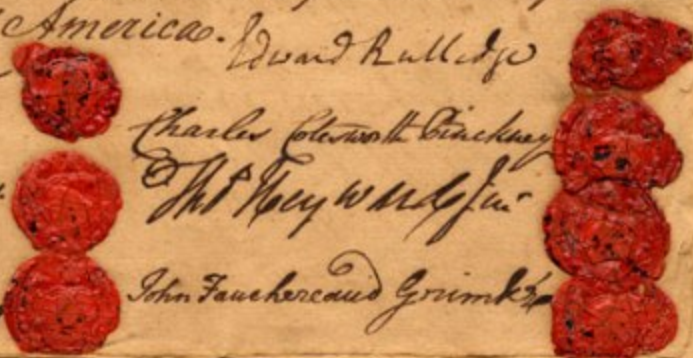 America.
Edward Rutledge
Charles Cotesworth Pinckney
Thos Heyward Junr
John Faucheraud Grimké